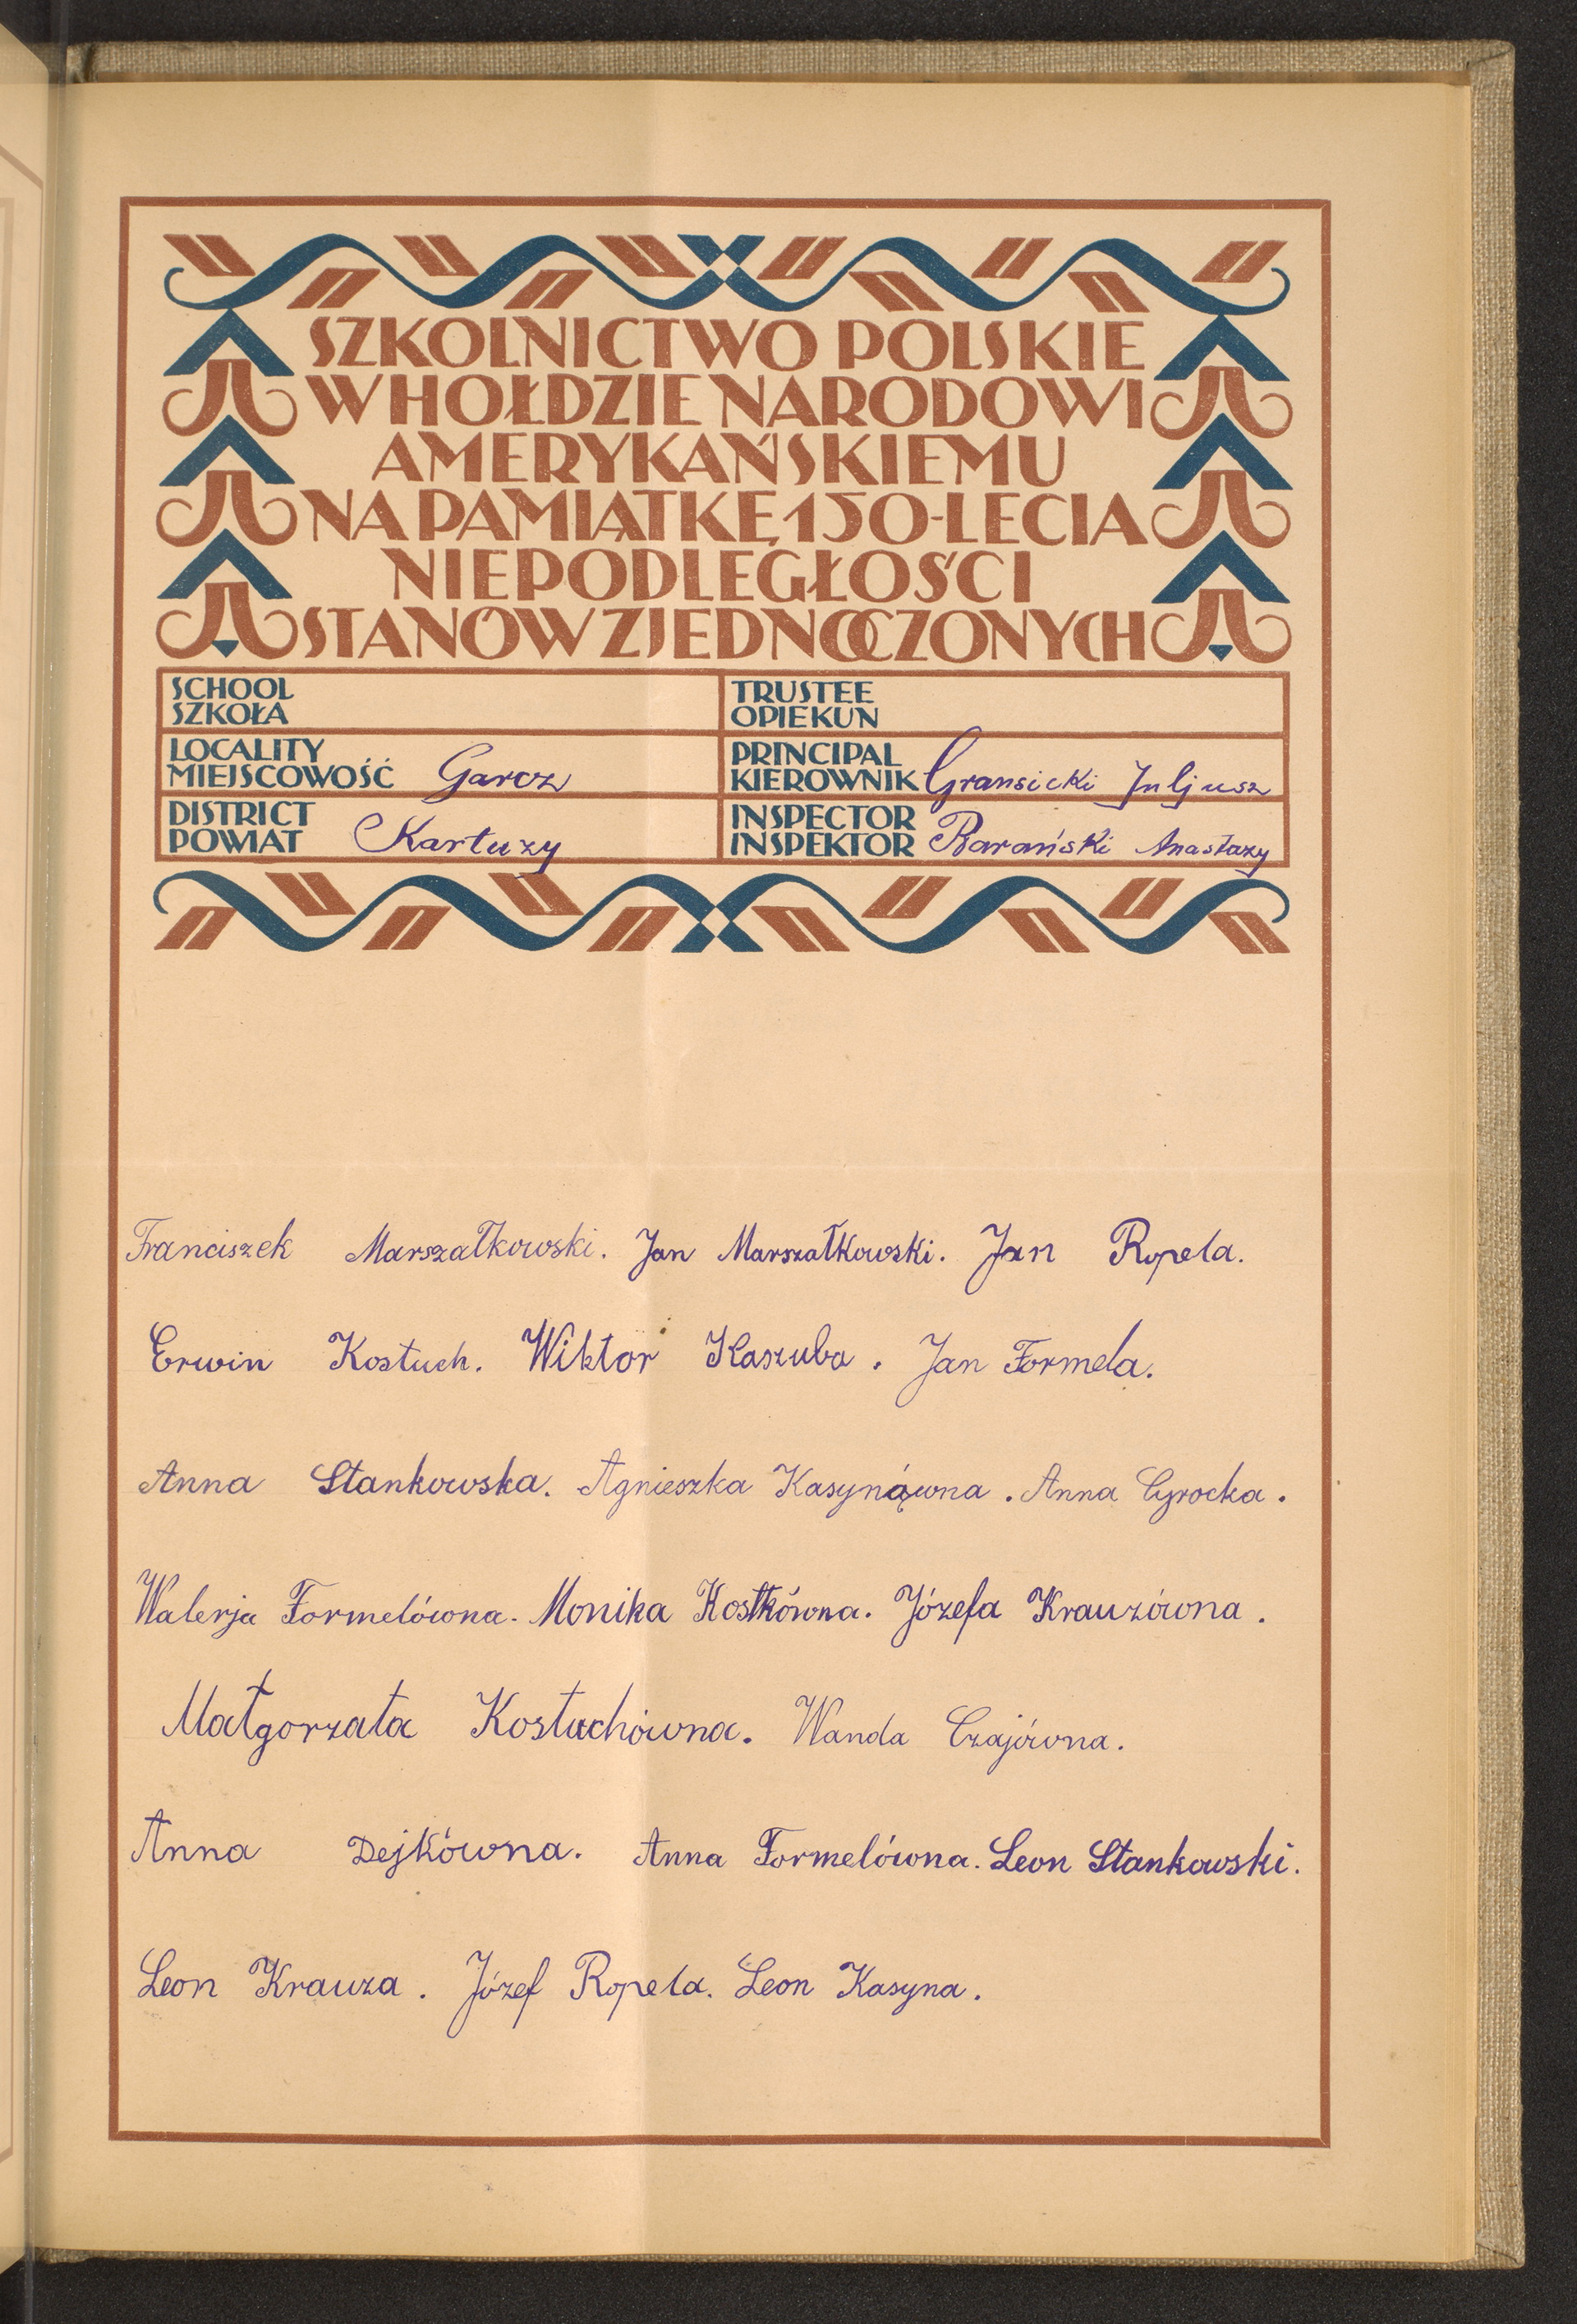 SZKOLNICTWO POLSKIE
W HOŁDZIE NARODOWI
AMERYKAŃSKIEMU
NA PAMIĄTKĘ 150-LECIA
NIEPODLEGŁOŚCI
STANÓW ZJEDNOCZONYCH
SCHOOL
SZKOŁA
TRUSTEE
OPIEKUN
LOCALITY
MIEJSCOWOŚĆ Garcz
PRINCIPAL
KIEROWNIK Gransicki Juljusz
DISTRICT
POWIAT Kartuzy
INSPECTOR
INSPEKTOR Barański Anastazy
Franciszek Marszałkowski. Jan Marszałkowski. Jan Ropela.
Erwin Kostuch. Wiktor Kaszuba. Jan Formela.
Anna Stankowska. Agnieszka Kasynówna. Anna Cyrocka.
Walerja Formelówna. Monika Kostkówna. Józefa Krauzówna.
Małgorzata Kostuchówna. Wanda Czajówna.
Anna Dejkówna. Anna Formelówna. Leon Stankowski.
Leon Krauza. Józef Ropela. Leon Kasyna.